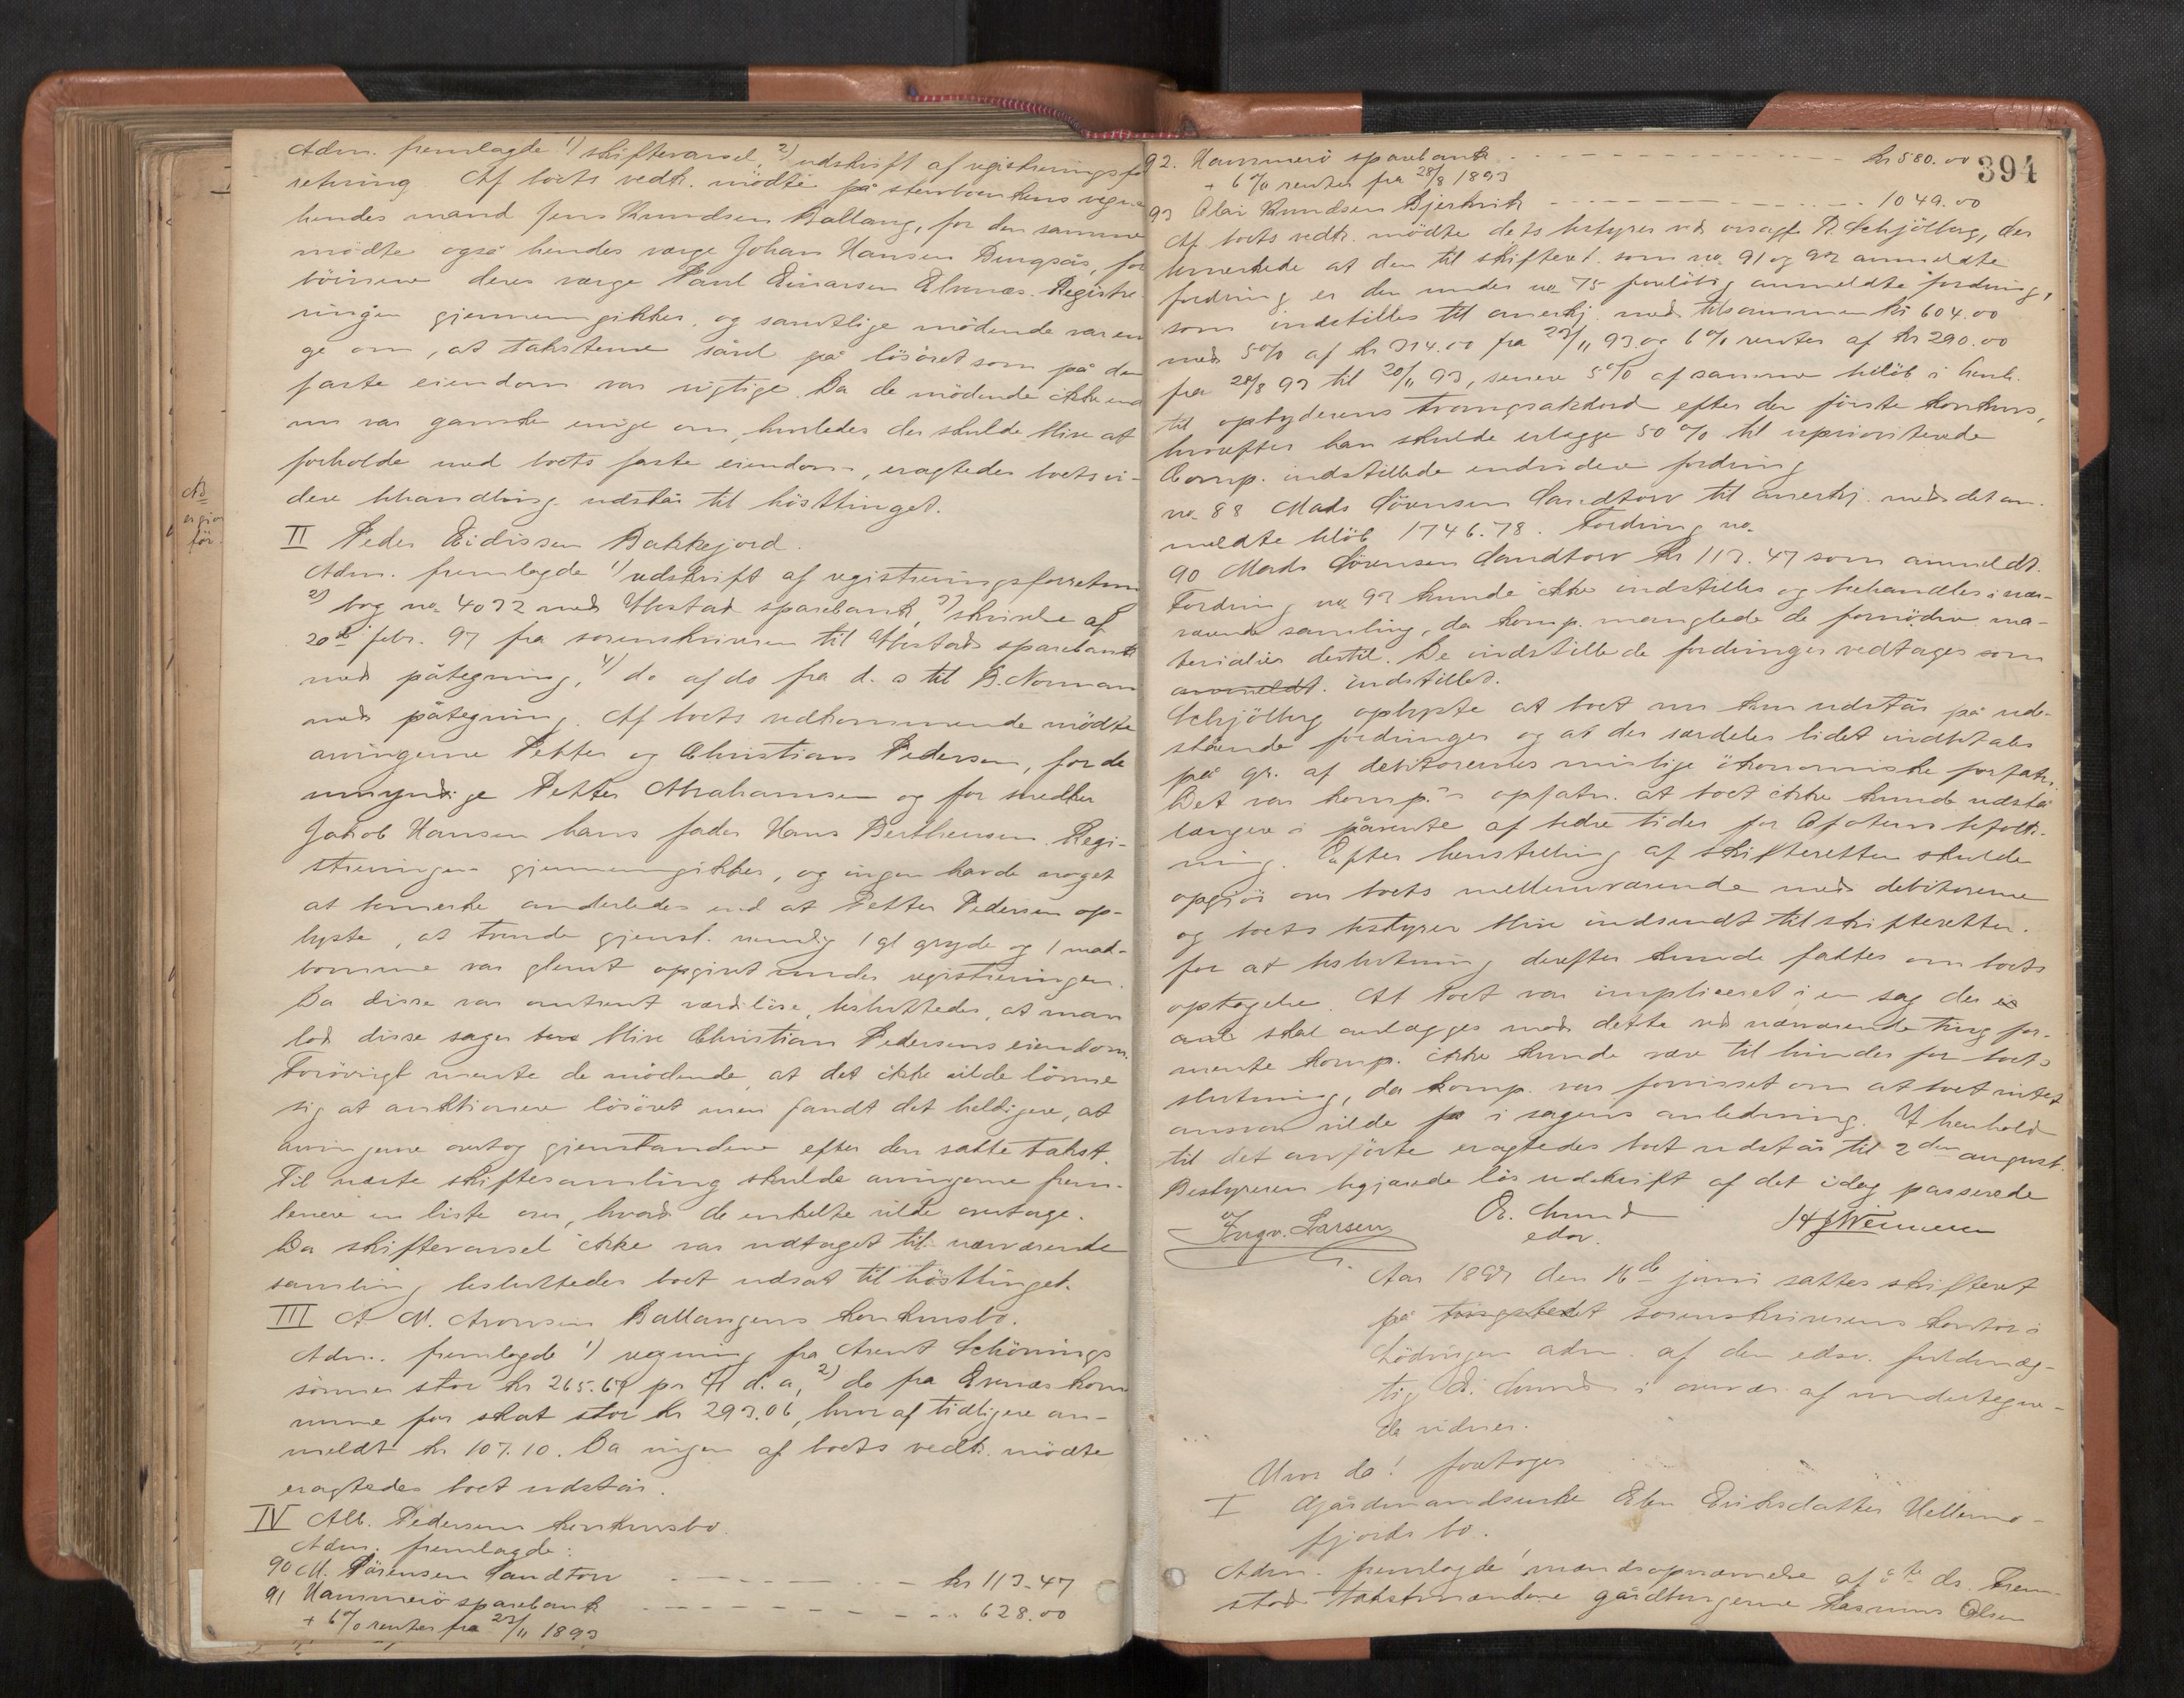 Adm. fremlagde 1) skiftevarsel, 2) udskrift af registreringsfor
retning Af boets vedk. mödte på stervboenkens vegne
hendes mand Jens Knudsen Ballang, for den samme
mödte også hendes værge Johan Hansen, for
börnene deres værge Paul Einarsen Elvenæs. Registre-
ringen gjennemgikkes, og samtlige mödende var eni
ge om, at taksterne såvel på lösöret som på den
faste eiendom var rigtige. Da de mödende ikke end
nu var ganske enige om, hvorledes der skulde blive at
forholde med boets faste eiendom, eragtedes boets vi-
dere behandling udstår til hösttinget.
II Peder Eidissen Bakkejord.
Adm. fremlagde 1) udskrift af registreringsforretn
2) bog no. 4032 med Ibestad sparebank, 3) skrivelse af
20de febr. 97 fra sorenskriveren til Ibestads sparebank
med påtegning, 4) do af do fra d. s til B. Norman
med påtegning. Af boets vedkommende mödte
arvingerne Petter og Christian Pedersen, for de
umyndige Petter Abrahamsen og for
Jakob Hansen hans fader Hans Bertheusen. Regi-
streringen gjennemgikkes, og ingen havde noget
at bemerke anderledes end at Petter Pedersen op-
lyste, at tvende gjenst. nemlig 1 gl gryde og 1 mad-
bomme var glemt opgivet under registreringen.
Da disse var omtrent værdilöse, besluttedes, at man
lod disse sager blive Christian Pedersens eiendom.
Forövrigt mente de mödende, at det ikke vilde lönne
sig at auktionere lösöret men fandt det heldigere, at
arvingerne overtog gjenstandene efter den satte takst.
Til næste skiftesamling skulde arvingerne frem-
levere en liste over, hvad de enkelte vilde overtage.
Da skiftevarsel ikke var udtaget til nærværende
samling besluttedes boet udsat til hösttinget.
III A M. Aronsen Ballangens konkursbo.
Adm. fremlagde 1) regning fra Arent Schönings
sönner stor kr 265.67 pr d. a, 2) do fra Evenæs kom
mune for skat stor kr 293.06, hvoraf tidligere an-
meldt kr 107.10. Da ingen af boets vedk. mödte
eragtedes boet udstår.
IV Alb. Pedersens konkursbo
Adm. fremlagde:
90 M. Sörensen Sandtorv kr 113.47
91 Hammerö sparebank 628.00
+ 6% renter fra 23/11 1893
394
92. Hammerö sparebank kr 580.00
+ 6% renter fra 28/8 1893
93 Olai Knudsen Bjerkvik 1049.00
Af boets vedk. mödte dets bestyrer ved P. Schjölberg, der
bemerkede at den til skifteret. som no. 91 og 92 anmeldte
fordring er den under no. 75 foreløbig anmeldte fordring,
som indstilles til anerkj. med tilsammen kr 604.00
med 5% af kr 314.00 fra 23/11 93 og 6% renter af kr 290.00
fra 28/8 93 til 20/11 93, senere 5% af samme belöb i henh.
til opbyderens tvangsakkord efter den förste konkurs,
hvorefter han skulde erlægge 50% til uprioriterede
Comp. indstillede endvidere fordring
no. 88 Mads Sörensen Sandtorv til anerkj. med det an-
meldte belöb 1746.78. Fordring no.
90 Mads Sörensen Sandtorv kr 113.47 som anmeldt.
Fordring no. 93 kunde ikke indstilles og behandles i nær-
værende samling, da komp. manglede de fornödne ma-
terialier dertil. De indstillede fordringer vedtages som
anmeldt. indstillet.
Schjölberg oplyste at boet nu kun udstår på ude-
stående fordringer og at der særdeles lidet indbetales
på gr. af debitorernes mislige ökonomiske forfatn.
Det var komp.s opfatn. at boet ikke kunde udstå
længere i påvente af bedre tider for Ofotens befolk-
ning. Efter henstilling af skifteretten skulde
opgjör over boets mellemværende med debitorerne
og boets bestyrer blive indsendt til skifteretten.
for at beslutning derefter kunde fattes om boets
optagelse. At boet var impliceret i en sag der
anlægges mod dette ved nærværende ting for-
mente komp. ikke kunde være til hinder for boets
slutning, da komp. var forvisset om at boet intet
ansvar vilde få i sagens anledning. I henhold
til det anförte eragtedes boet udstår til 2den august.
Bestyreren begjærede lös udskrift af det idag passerede
Ingv. Larsen
edsv.
Aar 1897 den 16de juni sattes skifteret
på tingstedet sorenskriverens kontor i
Lödingen adm. af den edsv. fuldmæg-
tig i overvær af undertegne-
de vidner.
Hvor da! foretoges
I Gårdmandsenke Elen Eriksdatter Hellemo-
fjords bo.
Adm. fremlagde mandsopnævnelse af ds. Frem-
stod takstmændene gårdbrugerne Rasmus Olsen